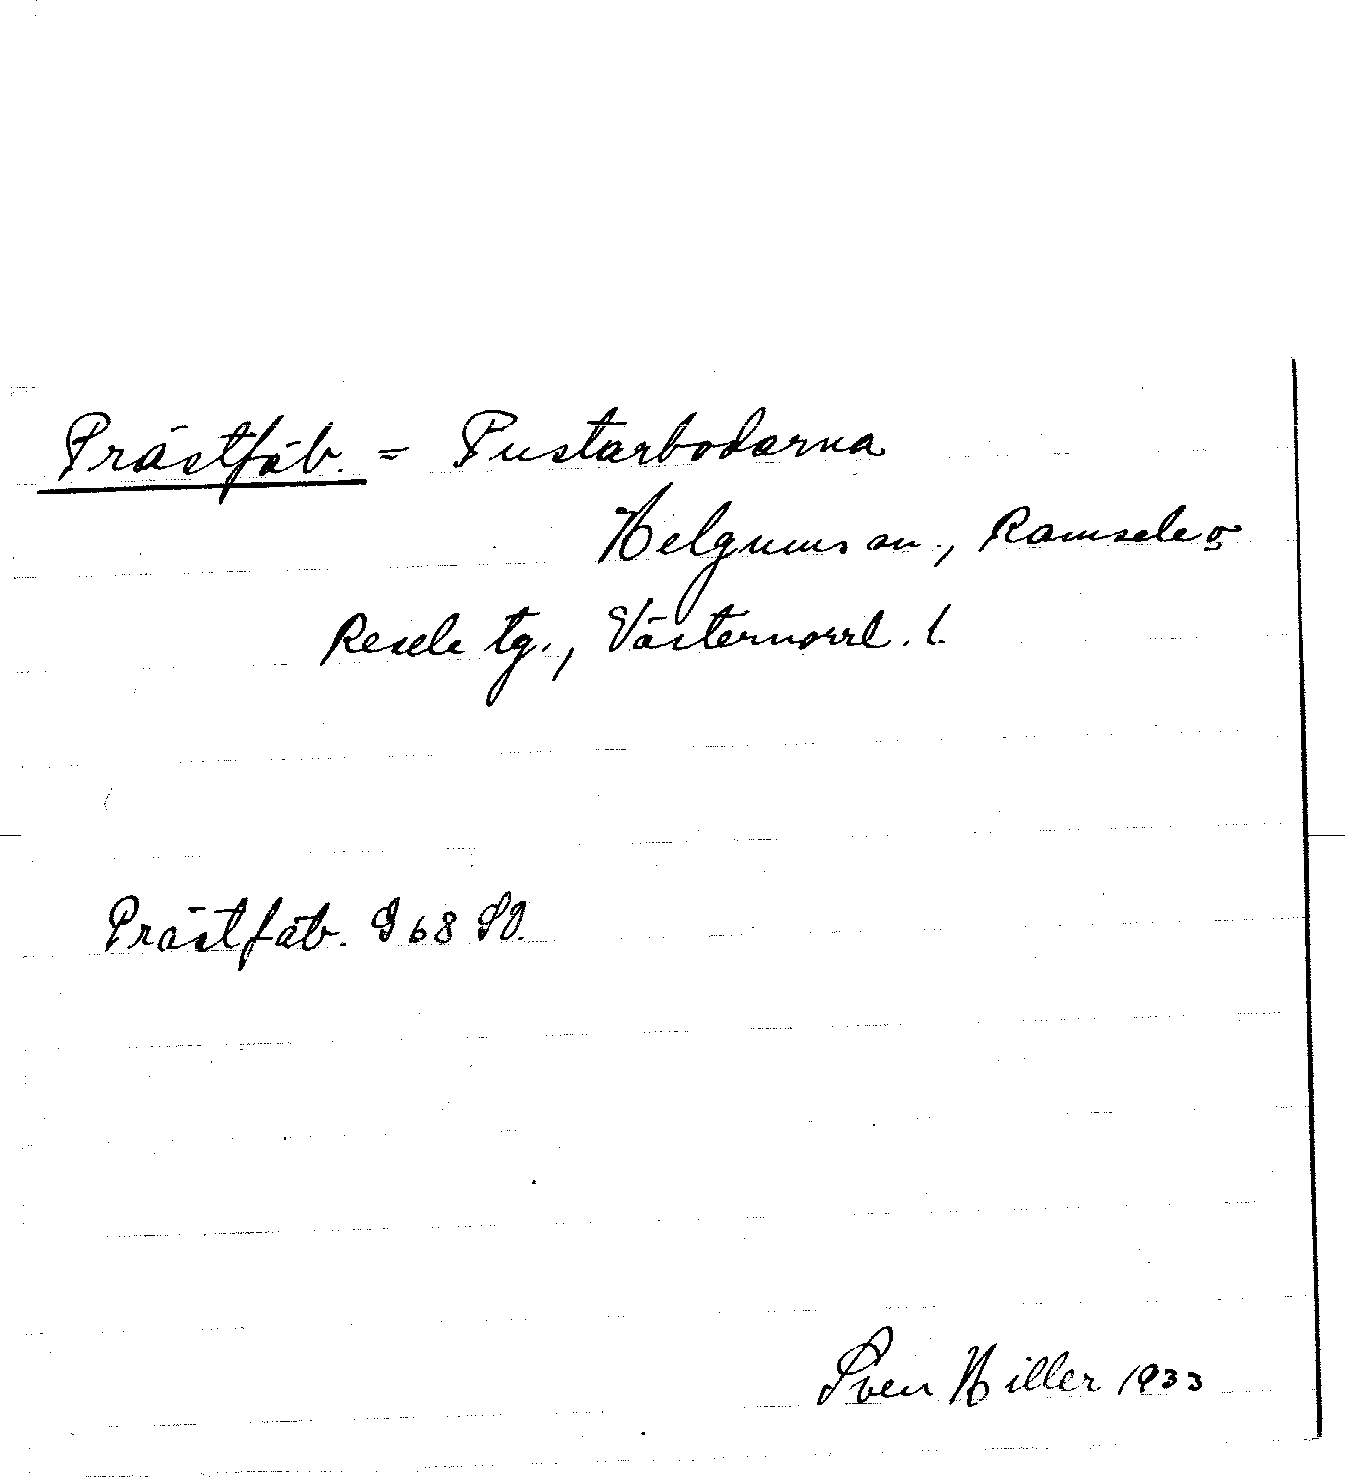 Prästfäb. = Pustarbodarna
Helgums sn., Ramsele o
Resele tg., Västernorrl. l.
Prästfäb. G 68 SO.
Sven Hiller 1933